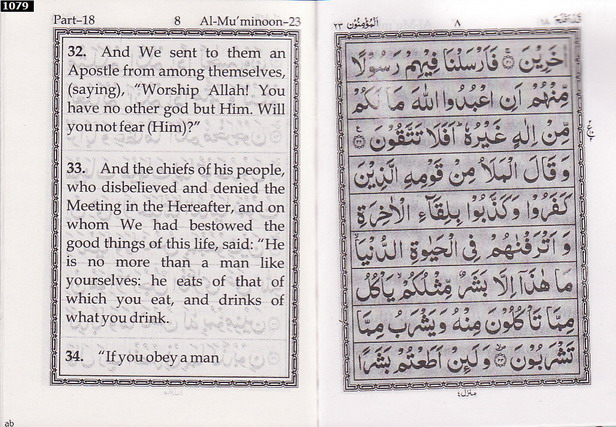 1079
Part–18 8 Al-Mu′minoon–23
32. And We sent to them an
Apostle from among themselves,
(saying), “Worship Allah! You
have no other god but Him. Will
you not fear (Him)?”
33. And the chiefs of his people,
who disbelieved and denied the
Meeting in the Hereafter, and on
whom We had bestowed the
good things of this life, said: “He
is no more than a man like
yourselves: he eats of that of
which you eat, and drinks of
what you drink.
34. “If you obey a man
ab
٨ اَلْمُؤْمِنُوْن ٢٣
اٰخَرِيْنَ ۝ فَاَرْسَلْنَا فِيْهِمْ رَسُوْلًا
مِّنْهُمْ اَنِ اعْبُدُوا اللّٰهَ مَا لَكُمْ
مِّنْ اِلٰهٍ غَيْرُهٗ ؕ اَفَلَا تَتَّقُوْنَ ۝
وَ قَالَ الْمَلَاُ مِنْ قَوْمِهِ الَّذِيْنَ
كَفَرُوْا وَكَذَّبُوْا بِلِقَآءِ الْاٰخِرَةِ
وَ اَتْرَفْنٰهُمْ فِى الْحَيٰوةِ الدُّنْيَا
مَا هٰذَاۤ اِلَّا بَشَرٌ مِّثْلُكُمْ يَاْكُلُ
مِمَّا تَاْكُلُوْنَ مِنْهُ وَيَشْرَبُ مِمَّا
تَشْرَبُوْنَ ۝ وَلَئِنْ اَطَعْتُمْ بَشَرًا
منزل ٤